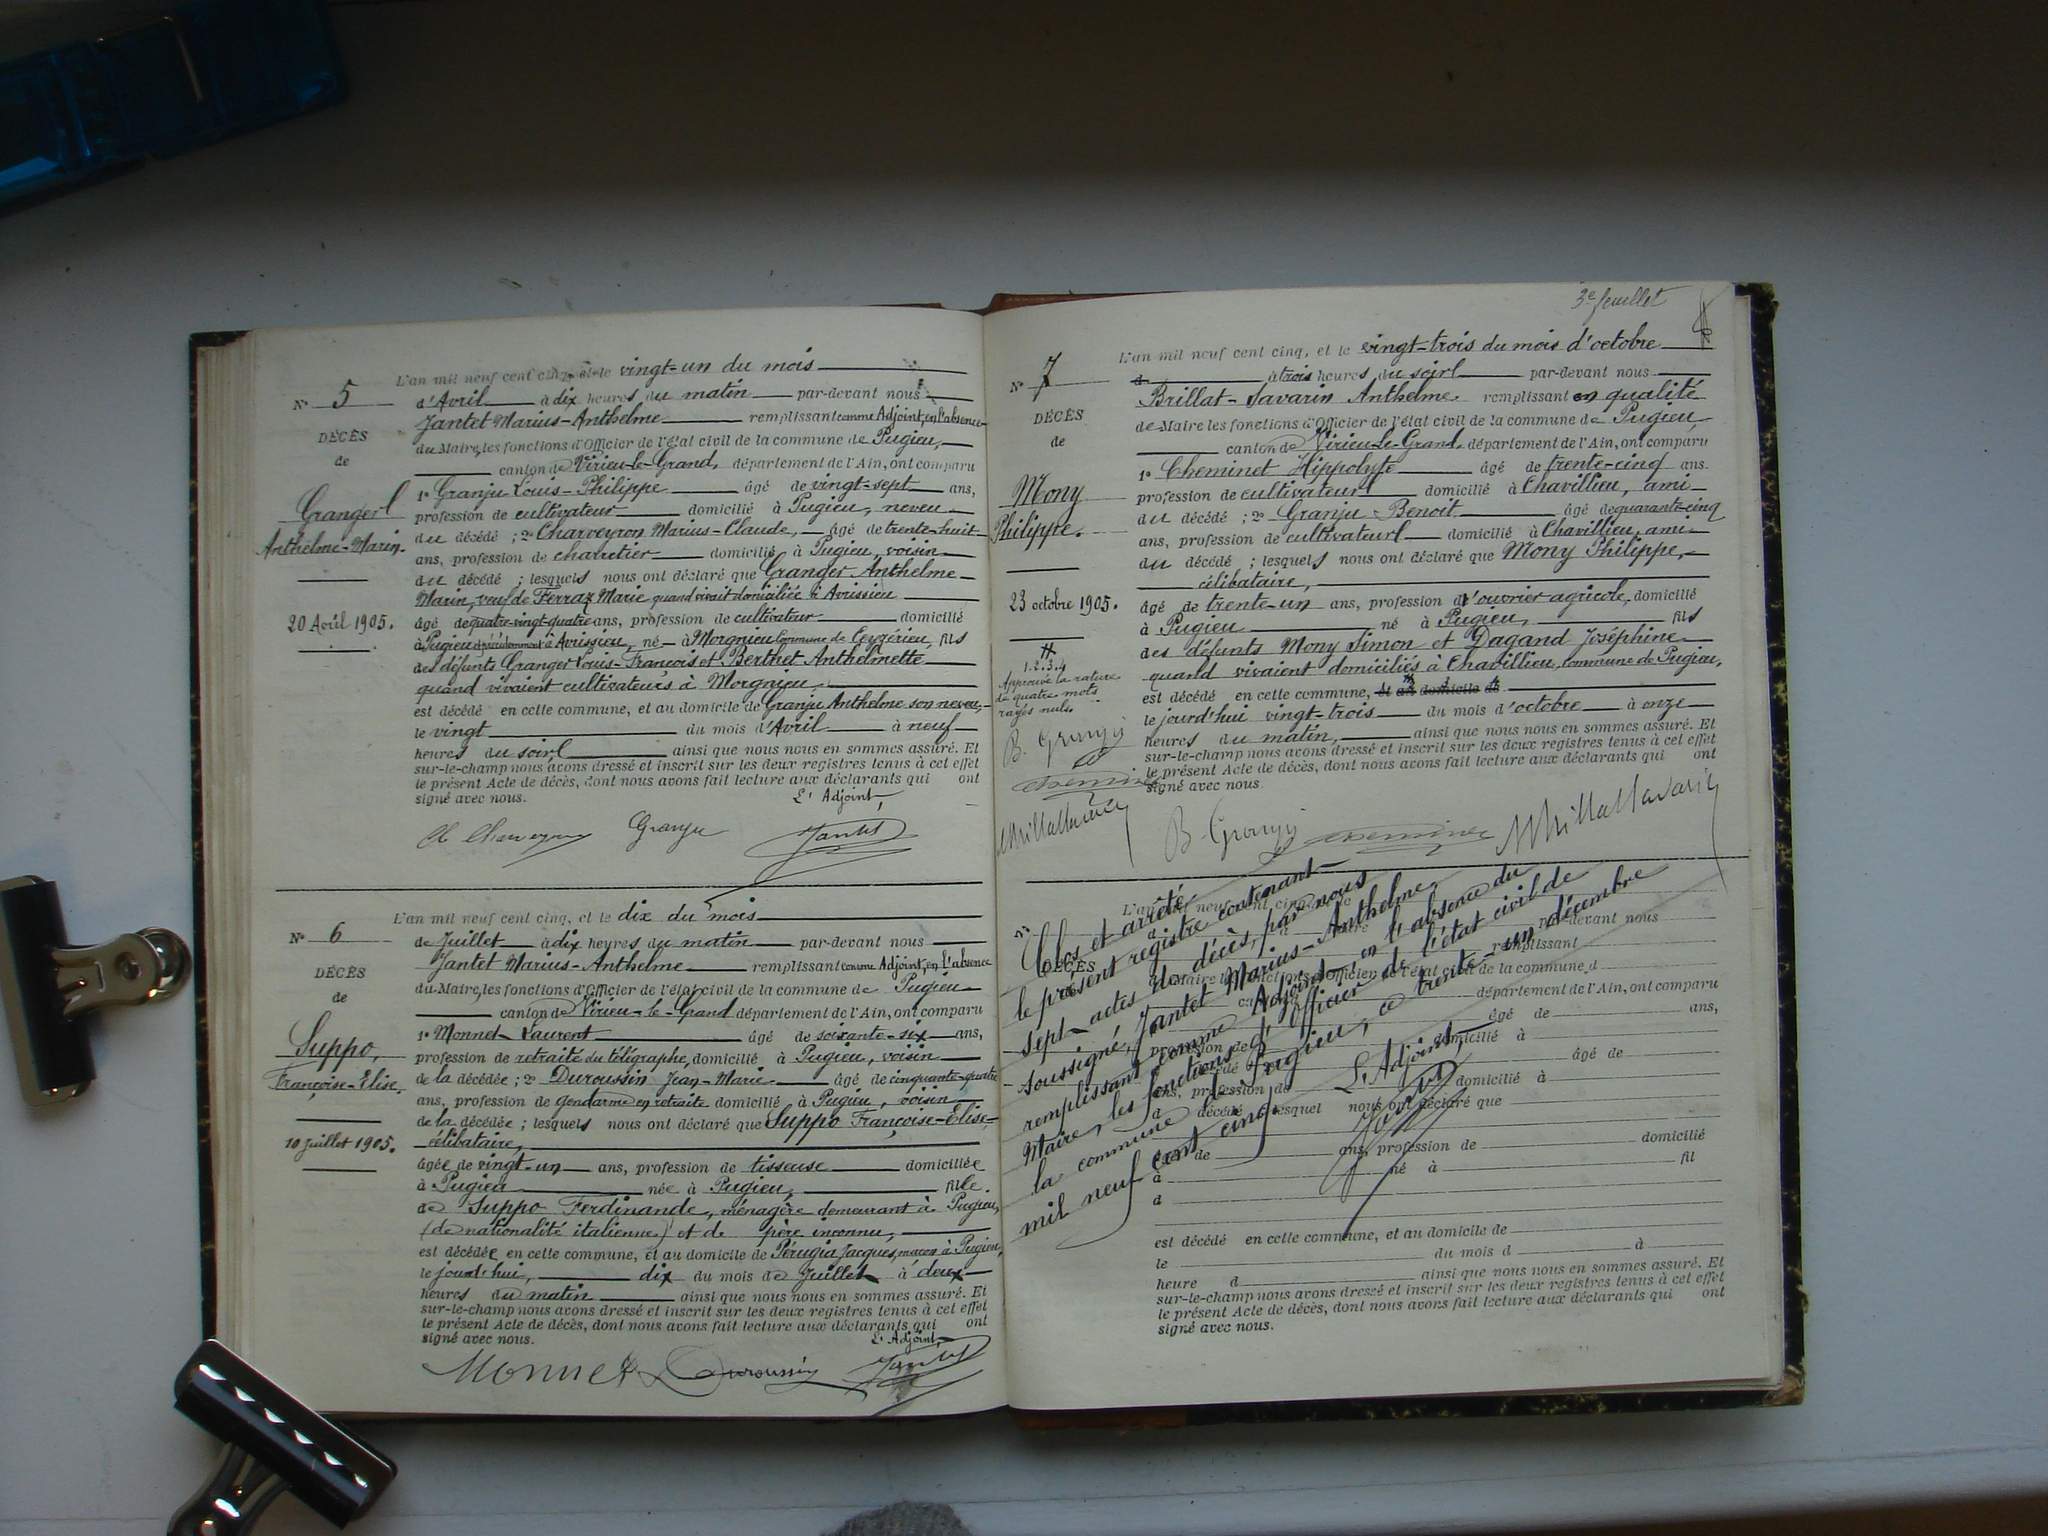 L'an mil neuf cent cinq, et le vingt-un du mois
N° 5
d'Avril à dix heures du matin par-devant nous
Jantet Marius-Anthelme remplissant comme Adjoint, en l'absence
DÉCÈS
du Maire, les fonctions d'Officier de l'état civil de la commune de Pugieu,
de
canton de Virieu-le-Grand, département de l'Ain, ont comparu
Granger
Anthelme-Marin.
20 Avril 1905.
1° Granju Louis-Philippe âgé de vingt-sept ans,
profession de cultivateur domicilié à Pugieu, neveu
du décédé ; 2° Charveyron Marius-Claude, âgé de trente-huit
ans, profession de charretier domicilié à Pugieu, voisin
du décédé ; lesquels nous ont déclaré que Granger Anthelme
Marin, veuf de Ferraz Marie quand vivait domiciliée à Avrissieu
âgé de quatre-vingt-quatre ans, profession de cultivateur domicilié
à Pugieu précédemment à Avrissieu, né à Morgnieu commune de Ceyzérieu, fils
des défunts Granger Louis-François et Berthet Anthelmette
quand vivaient cultivateurs à Morgnieu,
est décédé en cette commune, et au domicile de Granju Anthelme son neveu,
le vingt du mois d'Avril à neuf
heures du soir ainsi que nous nous en sommes assuré. Et
sur-le-champ nous avons dressé et inscrit sur les deux registres tenus à cet effet
le présent Acte de décès, dont nous avons fait lecture aux déclarants qui ont
signé avec nous.
L'Adjoint,
Granju Jantet
L'an mil neuf cent cinq, et le dix du mois
N° 6
de Juillet à dix heures du matin par-devant nous
Jantet Marius-Anthelme remplissant comme Adjoint, en l'absence
DÉCÈS
du Maire, les fonctions d'Officier de l'état civil de la commune de Pugieu
de
canton de Virieu-le-Grand département de l'Ain, ont comparu
Suppo,
Françoise-Elise.
10 Juillet 1905.
1° Monnet Laurent âgé de soixante-six ans,
profession de retraité du télégraphe, domicilié à Pugieu, voisin
de la décédée ; 2° Duroussin Jean-Marie âgé de cinquante-quatre
ans, profession de gendarme en retraite domicilié à Pugieu, voisin
de la décédée ; lesquels nous ont déclaré que Suppo Françoise-Elise,
célibataire,
âgée de vingt-un ans, profession de tisseuse domiciliée
à Pugieu née à Pugieu, fille
de Suppo Ferdinande, ménagère demeurant à Pugieu,
(de nationalité italienne) et de père inconnu,
est décédée en cette commune, et au domicile de Pérugia Jacques, maçon à Pugieu,
le jourd'hui, dix du mois de Juillet à deux
heures du matin ainsi que nous nous en sommes assuré. Et
sur-le-champ nous avons dressé et inscrit sur les deux registres tenus à cet effet
le présent Acte de décès, dont nous avons fait lecture aux déclarants qui ont
signé avec nous.
L'Adjoint,
Monnet Duroussin Jantet
3e feuillet
L'an mil neuf cent cinq, et le vingt-trois du mois d'octobre
N° 7
à trois heures du soir par-devant nous
Brillat-Savarin Anthelme remplissant en qualité
DÉCÈS
de Maire les fonctions d'Officier de l'état civil de la commune de Pugieu
de
canton de Virieu-le-Grand, département de l'Ain, ont comparu
Mony
Philippe.
23 octobre 1905.
1° Cheminet Hippolyte âgé de trente-cinq ans.
profession de cultivateur domicilié à Chavillieu, ami
du décédé ; 2° Granju Benoit âgé de quarante-cinq
ans, profession de cultivateur domicilié à Chavillieu, ami
du décédé ; lesquels nous ont déclaré que Mony Philippe,
célibataire,
âgé de trente-un ans, profession d'ouvrier agricole, domicilié
à Pugieu né à Pugieu, fils
des défunts Mony Simon et Dagand Joséphine
quand vivaient domiciliés à Chavillieu, commune de Pugieu,
est décédé en cette commune, et au domicile de
le jourd'hui vingt-trois du mois d'octobre à onze
heures du matin, ainsi que nous nous en sommes assuré. Et
sur-le-champ nous avons dressé et inscrit sur les deux registres tenus à cet effet
le présent Acte de décès, dont nous avons fait lecture aux déclarants qui ont
signé avec nous.
1.2.3.4
Approuvé la rature
de quatre mots
rayés nuls.
B. Granju
Cheminet
ABrillatSavarin
B. Granju Cheminet ABrillatSavarin
Clos et arrêté
le présent registre contenant
sept actes de décès, par nous
soussigné, Jantet Marius-Anthelme,
remplissant comme Adjoint, en l'absence du
Maire, les fonctions d'Officier de l'état civil de
la commune de Pugieu, ce trente-un décembre
mil neuf cent cinq
L'Adjoint,
Jantet
DÉCÈS
par-devant nous
remplissant
Maire les fonctions d'Officier de l'état civil de la commune d
département de l'Ain, ont comparu
âgé de ans,
profession de domicilié à
décédé âgé de
ans, profession de domicilié à
d décédé lesquel nous ont déclaré que
de ans, profession de domicilié
à né à fil
d
est décédé en cette commune, et au domicile de
le du mois d à
heure d ainsi que nous nous en sommes assuré. Et
sur-le-champ nous avons dressé et inscrit sur les deux registres tenus à cet effet
le présent Acte de décès, dont nous avons fait lecture aux déclarants qui ont
signé avec nous.